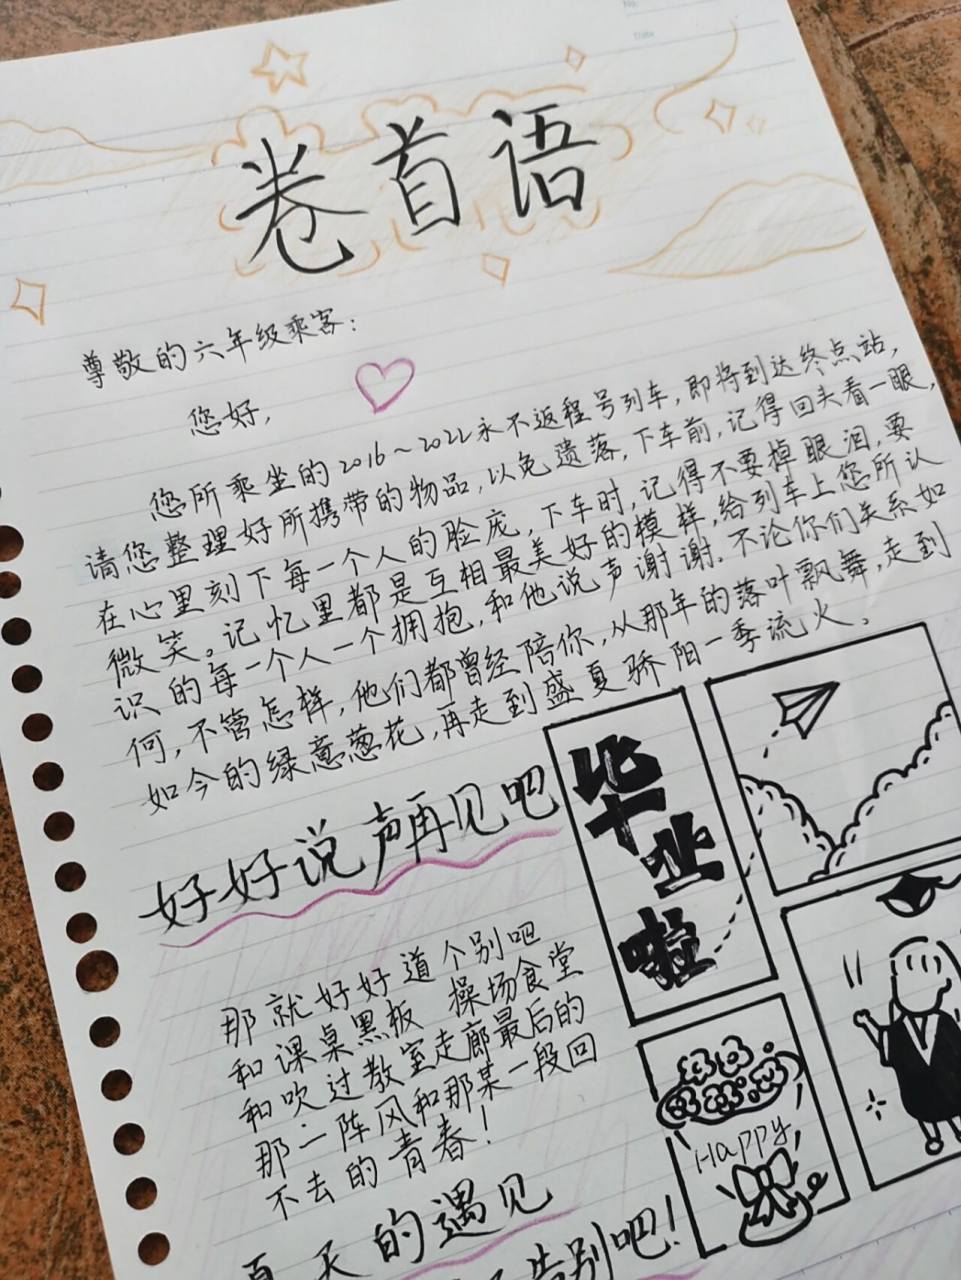 No.
Date
卷首语
尊敬的六年级乘客：
您好，
您所乘坐的2016～2022永不返程号列车，即将到达终点站，
请您整理好所携带的物品，以免遗落，下车前，记得回头看一眼，
在心里刻下每一个人的脸庞，下车时，记得不要掉眼泪，要
微笑。记忆里都是互相最美好的模样，给列车上您所认
识的每一个人一个拥抱，和他说声谢谢。不论你们关系如
何，不管怎样，他们都曾经陪你，从那年的落叶飘舞，走到
如今的绿意葱花，再走到盛夏骄阳一季流火。
好好说声再见吧
毕业啦
那就好好道个别吧
和课桌黑板 操场食堂
和吹过教室走廊最后的
那一阵风和那某一段回
不去的青春！
Happy
夏天的遇见
告别吧！